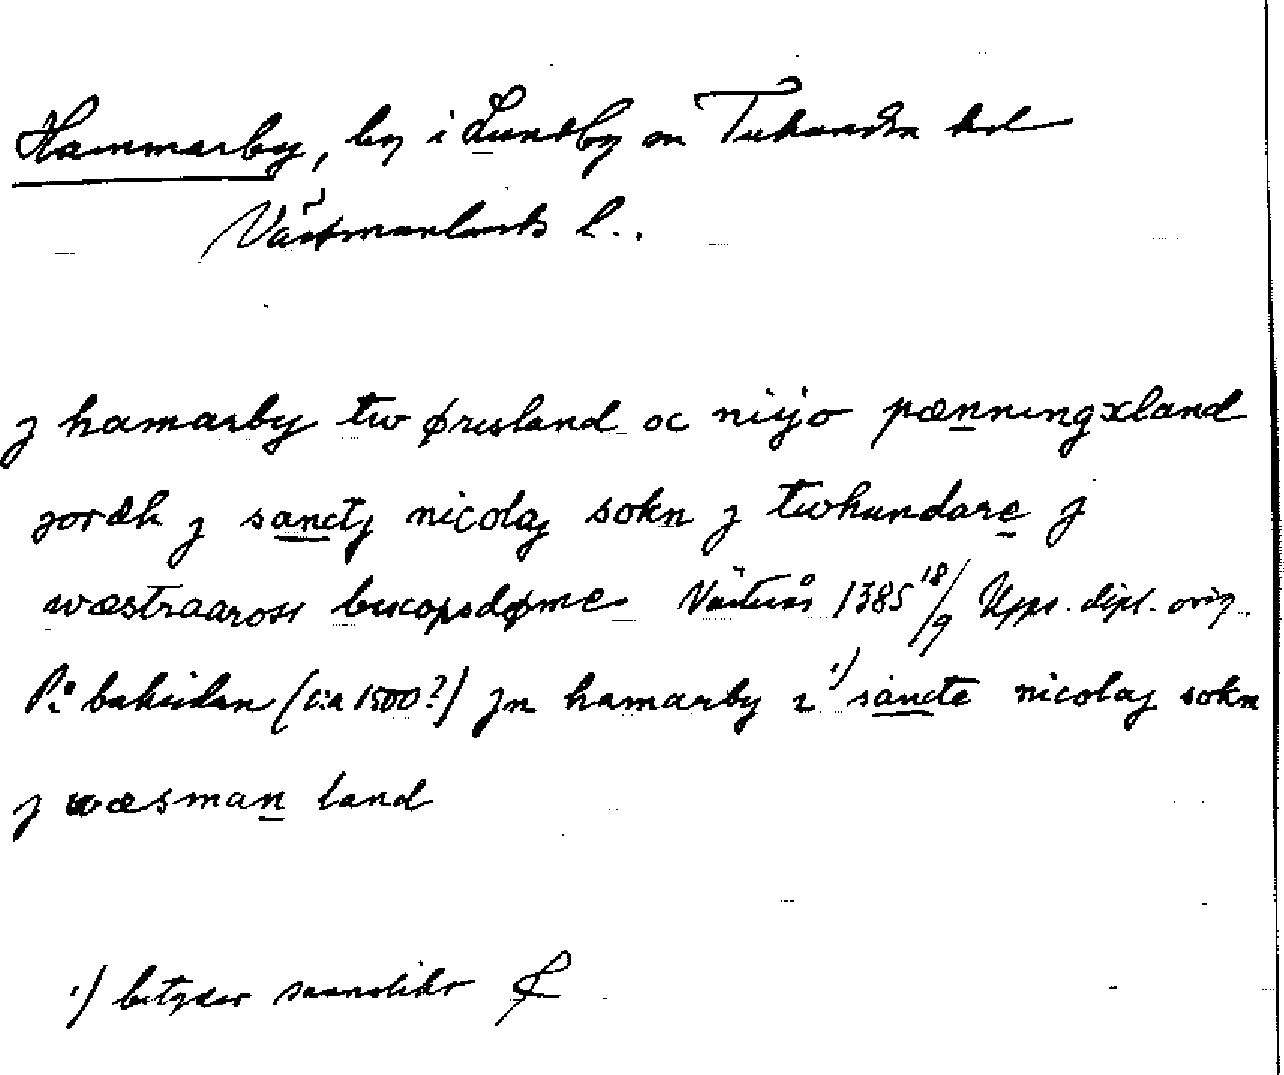 Hammarby, by i Lundby sn Tuhundra hd
Västmanlands l.
j hamarby tw øresland oc niyo pænningxland
jordh j sanctj nicolaj sokn j twhundare j
wæstraaross biscopsdøme Västerås 1385 18/9 Upps. dipl. orig.
På baksidan (c:a 1500?) jn hamarby i 1) sancte nicolaj sokn
j wæsman land
1) betyder sannolikt